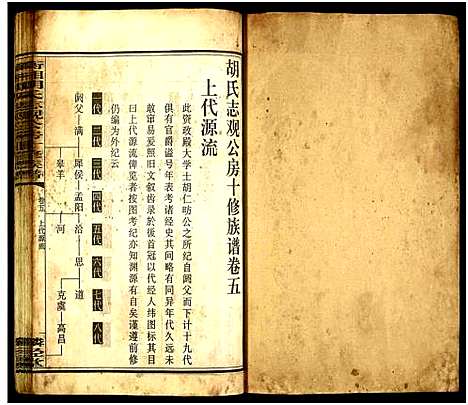 胡氏志观公房十修族谱卷五
上代源流
此资政殿大学士胡仁昉公之所纪自阏父而下计十九代
俱有官爵谥号年表考诸经史其间略有同异年代久远未
敢窜易爰照旧文叙齿录于后首冠以代经人纬图标其目
曰上代源流俾览者按图考纪亦知渊源有自矣谨遵前修
仍编为外纪云
一代 二代 三代 四代 五代 六代 七代 八代
阏父 满 犀侯 孟阳 沿 思 道
皋羊 河
克虞 高昌
卷五 上代源流